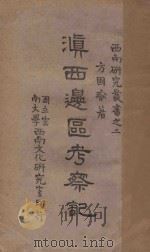 西南研究叢書之二
方国瑜著
滇西邊區考察記
國立雲南大學西南文化研究室印行